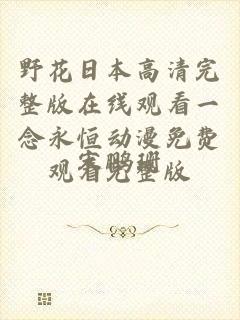 野花日本高清完
整版在线观看一
念永恒动漫免费
观看完整版
鹏珊